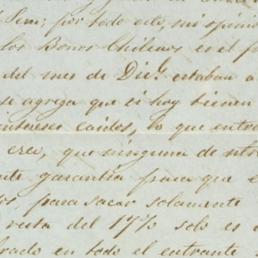 Lim; por todo esto, mi opinio
los Bonos Chilenos es el p
del mes de Dic.e estaban a
se agrega que si hay bienen
intereses caidos, lo que entre
cree, que ninguna de
garantia para que e
para sacar solamente
resta del 17% solo es
en todo el entrante